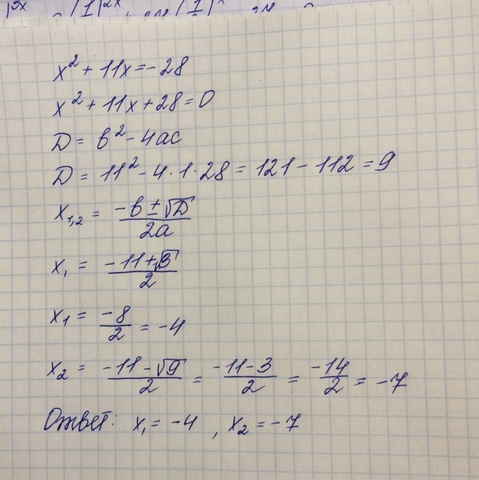 x² + 11x = -28
x² + 11x + 28 = 0
D = b² - 4ac
D = 11² - 4 · 1 · 28 = 121 - 112 = 9
x₁,₂ = (-b ± √D) / 2a
x₁ = (-11 + √3) / 2
x₁ = -8/2 = -4
x₂ = (-11 - √9) / 2 = (-11 - 3) / 2 = -14/2 = -7
Ответ: x₁ = -4, x₂ = -7